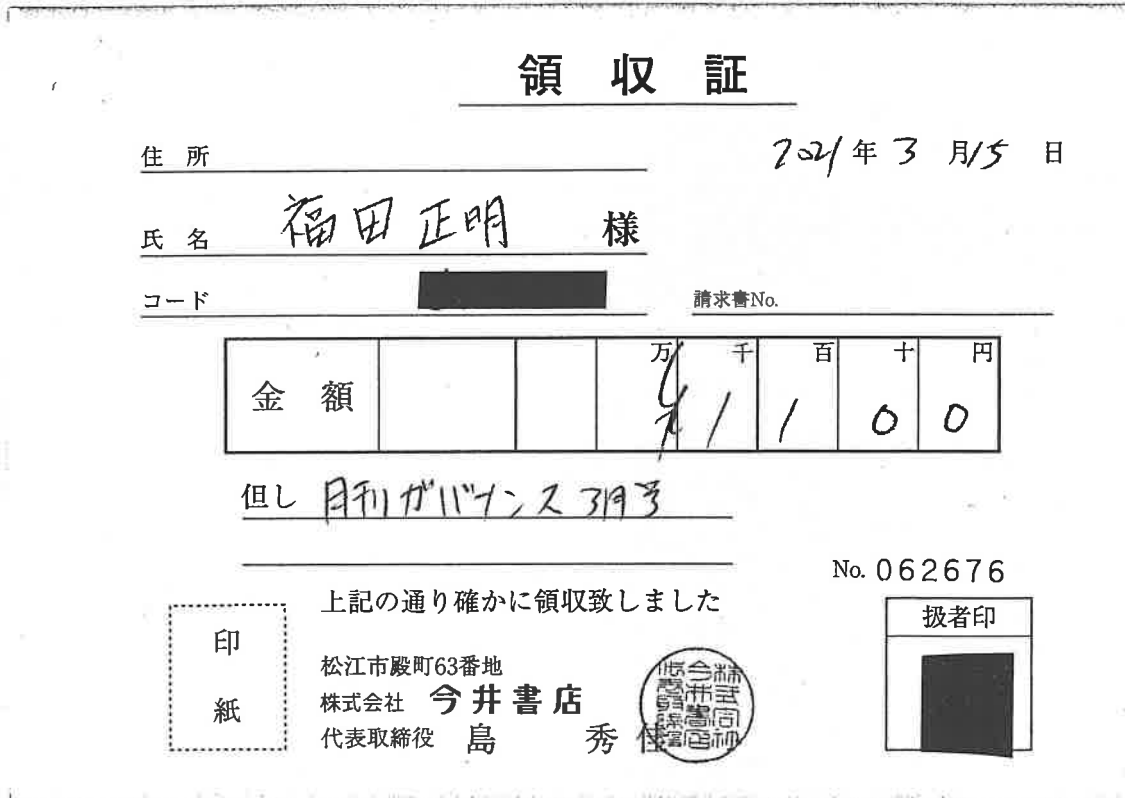 領収証
住所
2021年3月15日
氏名 福田正明 様
コード
請求書No.
金額 万 千 百 十 円
¥ 1 1 0 0
但し 月刊ガバナンス3月号
No. 062676
上記の通り確かに領収致しました
扱者印
印紙
松江市殿町63番地
株式会社 今井書店
代表取締役 島 秀佳